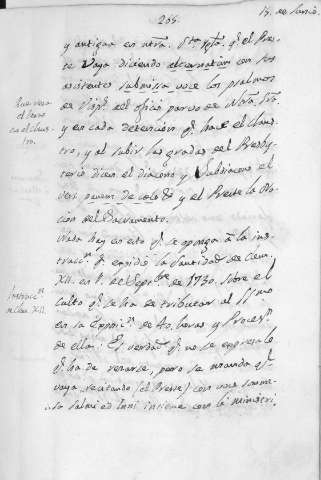 205.
13. de Junio.
y antigua en ntra. Sta. Ygla. q.e el Pres-
te vaya diciendo alternatim con los
asistentes submissa voce los psalmos
en Visp.s del oficio parvo de Ntra. Sra.
y en cada detencion q.e hace el Claus-
tro, y al subir las gradas del Presby-
terio dicen el diacono y Subdiacono el
vers. panem de coelo &c. y el Preste la Ora-
cion del Sacramento.
Que reza
el Preste
en el claus-
tro.
Nada hay en esto q.e se oponga à la ins-
trucc.n q.e expidió la Santidad de Clem.
XII. en 1. de Septbre. de 1730. sobre el
culto q.e se ha de tributar al SSmo
en la Exposic.n de 40. horas y Proces.n
de ellas: Es verdad q.e no se expresa lo
q.e ha de rezarse, pero se manda q.e
vaya recitando (el Preste) con voce somme-
sa salmi ed Inni insieme con li ministri.
Instrucc.n
de Clem. XII.